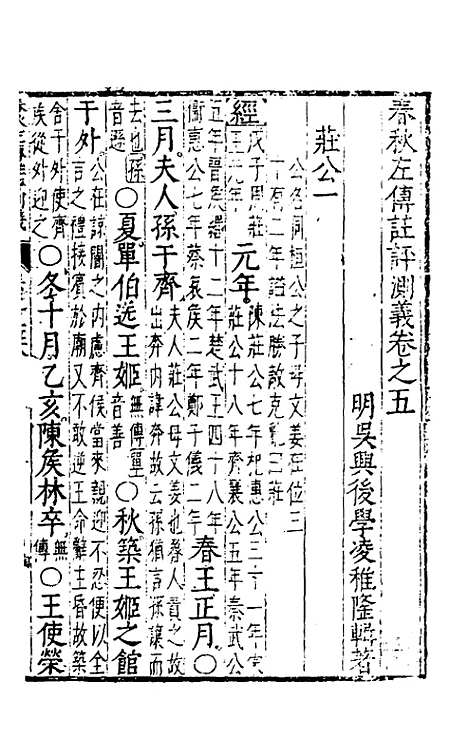 春秋左傳註評測義卷之五
明吳興後學凌稚隆輯著
莊公一
公名同桓公之子母文姜在位三
十有二年諡法勝敵克亂曰莊
經
戊子周莊
王元年
元年
陳莊公七年杞惠公三十一年宋
莊公十八年齊襄公五年秦武公
五年晉侯緡十二年楚武王四十八年
衛惠公七年蔡哀侯二年鄭子儀二年
春王正月○
三月夫人孫于齊
夫人莊公母文姜也魯人責之故
出奔内諱奔故云孫猶言孫讓而
去也孫
音遜
○夏單伯逆王姬
無傳單
音善
○秋築王姬之館
于外
公在諒闇之内慮齊侯當來親迎不忍便以全
言之禮接賓於廟又不敢逆王命辭主昏故築
舍于外使齊
侯從外迎之
○冬十月乙亥陳侯林卒
無
傳
○王使榮